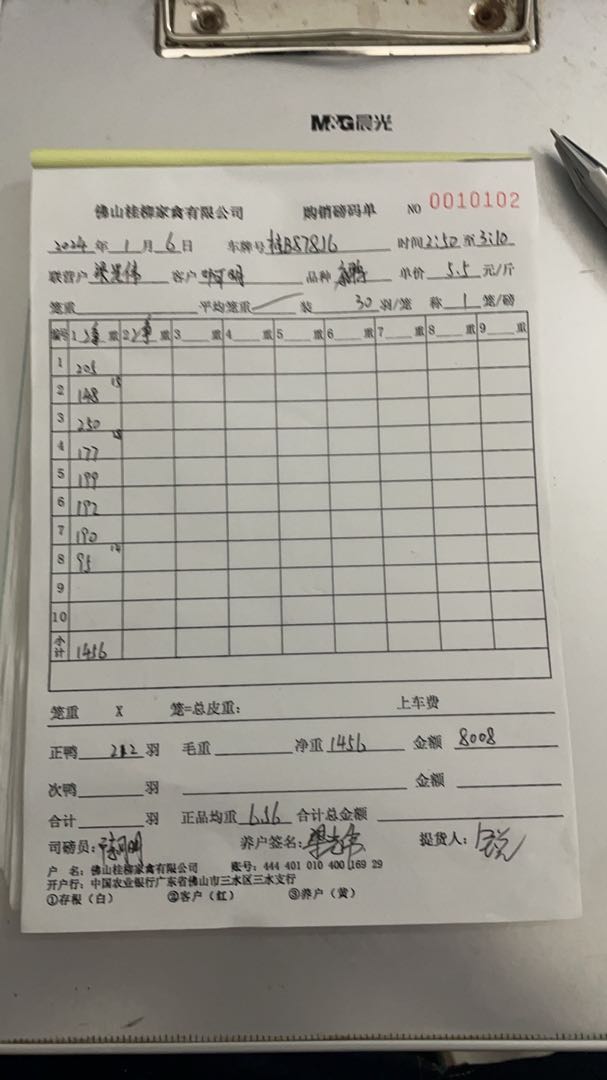 M&G晨光
佛山桂柳家禽有限公司 购销磅码单 NO 0010102
2024 年 1 月 6 日 车牌号 桂B57816 时间 2:50 至 3:10
联营户 客户 明 品种 单价 5.5 元/斤
笼重 平均笼重 装 30 羽/笼 称 1 笼/磅
编号 1 净 重 2 净 重 3 重 4 重 5 重 6 重 7 重 8 重 9 重
1 205
2 148 15
3 250
4 177
5 199
6 192
7 190
8 95 14
9
10
小计 1456
笼重 X 笼=总皮重: 上车费
正鸭 212 羽 毛重 净重 1456 金额 8008
次鸭 羽 金额
合计 羽 正品均重 6.86 合计总金额
司磅员: 养户签名: 提货人:
户 名: 佛山桂柳家禽有限公司 账号: 444 401 010 400 169 29
开户行: 中国农业银行广东省佛山市三水区三水支行
①存根（白） ②客户（红） ③养户（黄）